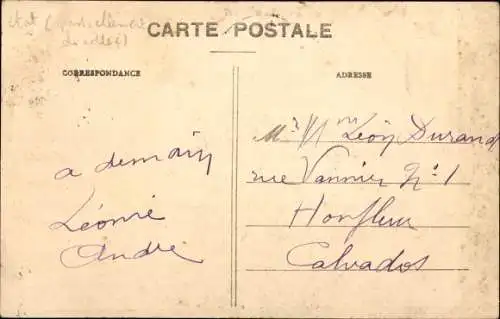 CARTE POSTALE
CORRESPONDANCE
ADRESSE
a demain
Léonie
André
Mr Mme Léon Durand
rue Vannier No 1
Honfleur
Calvados